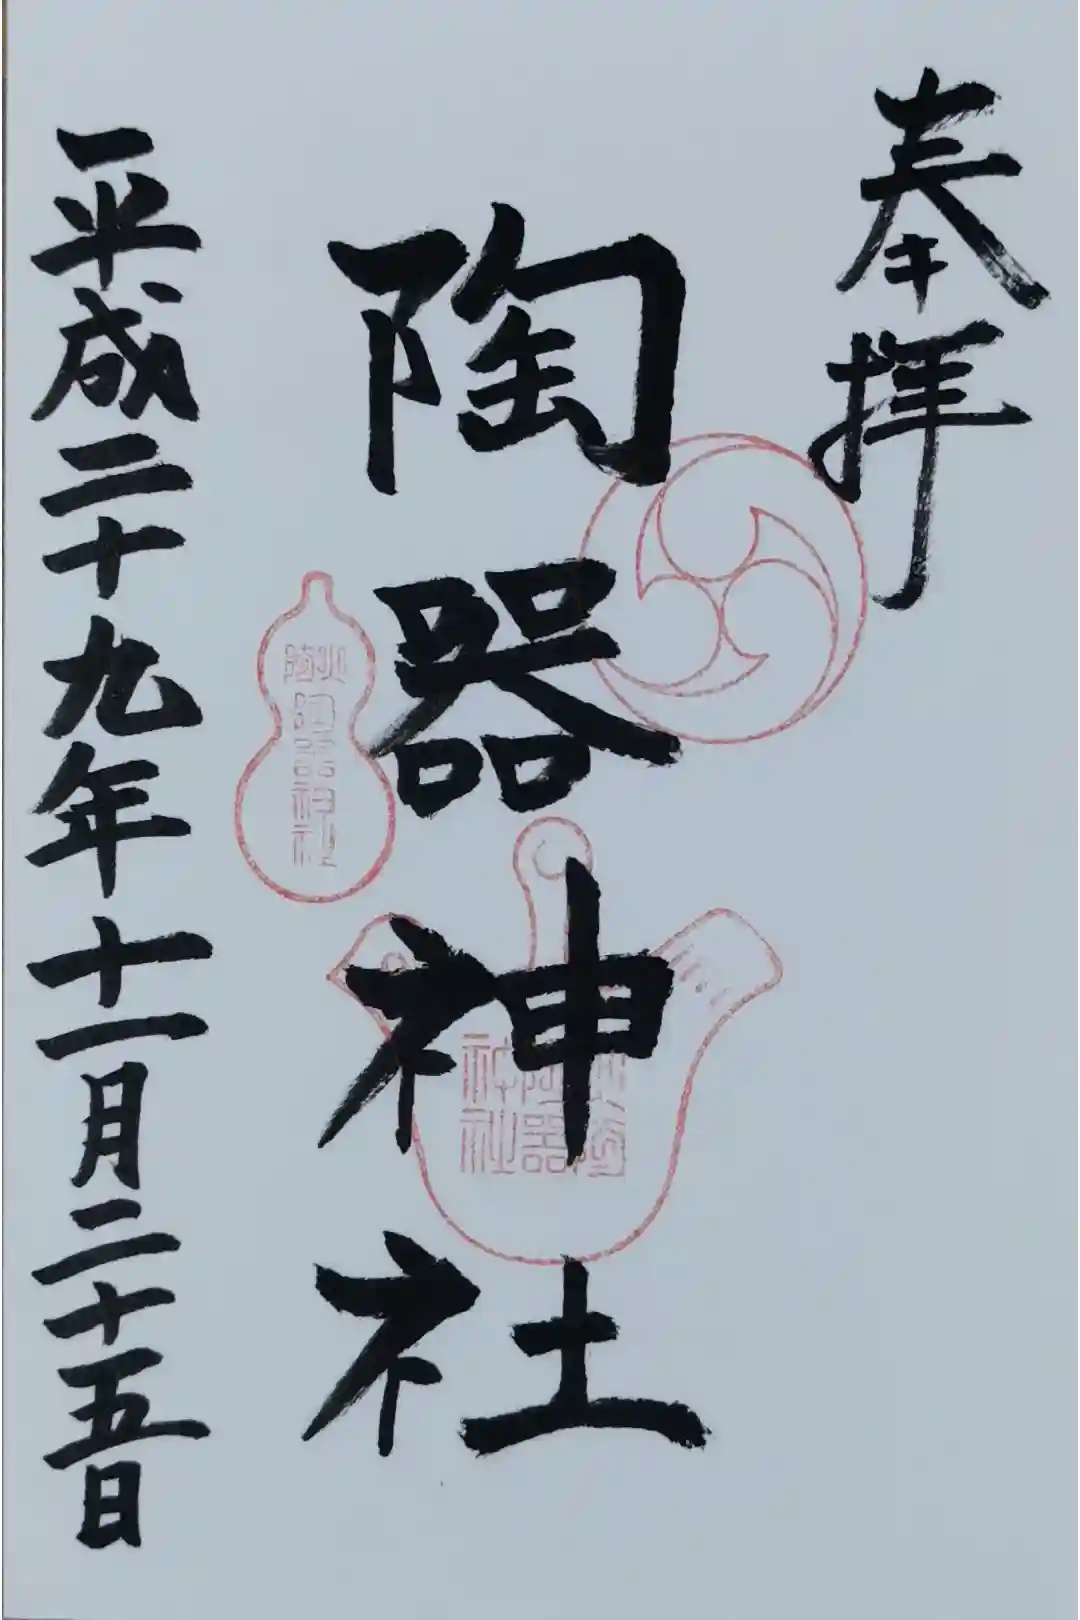 奉拝
陶器神社
平成二十九年十一月二十五日
火防
陶器神社
陶器
神社